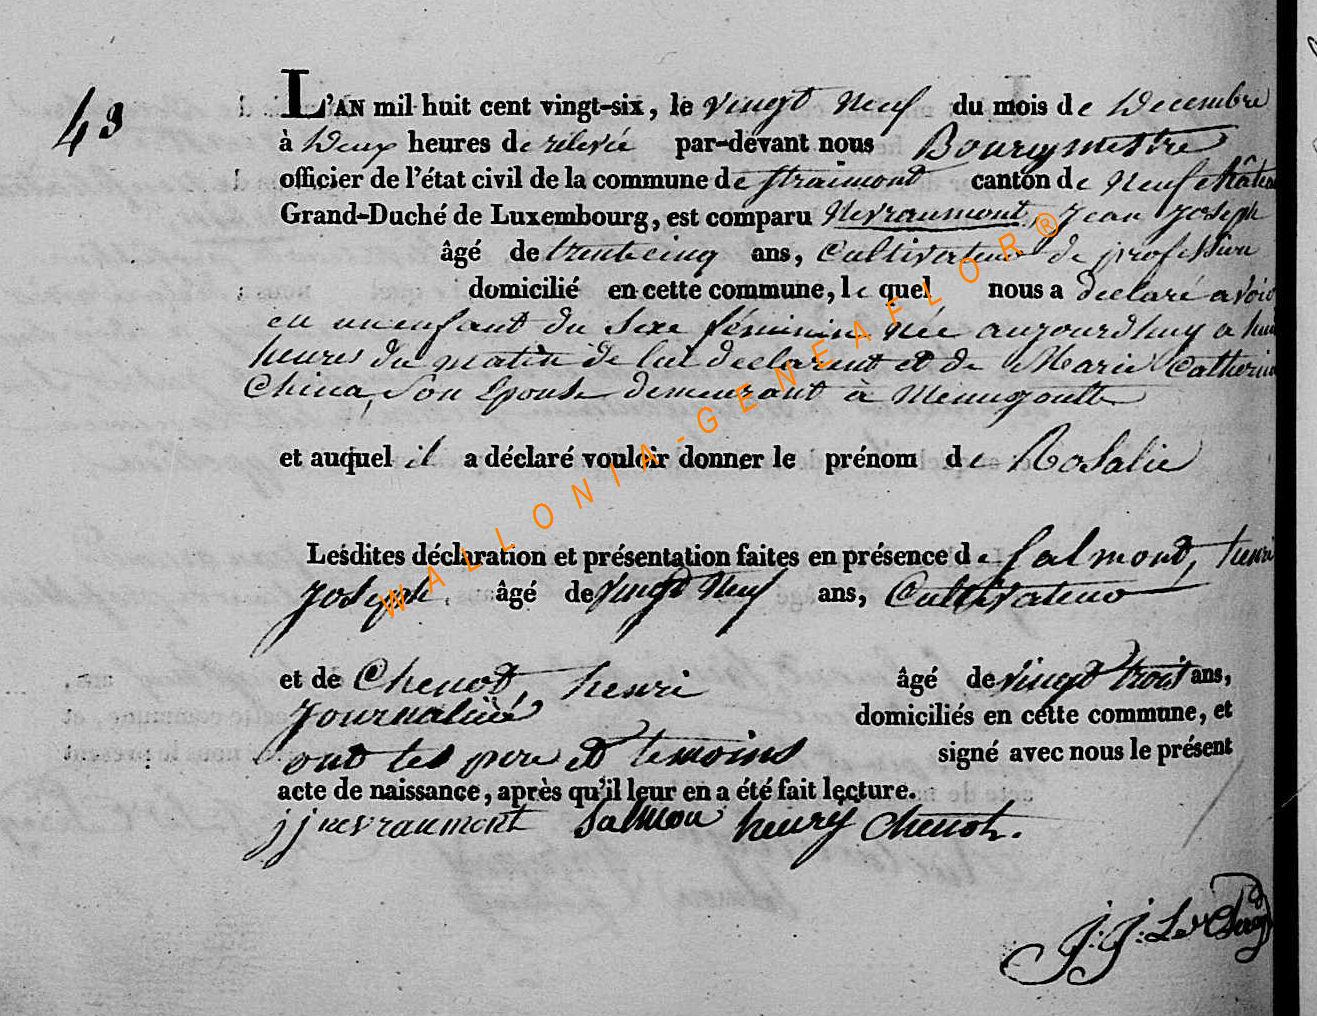 43
L'AN mil huit cent vingt-six, le vingt neuf du mois de Decembre
à Deux heures de relevée par-devant nous Bourgmestre
officier de l'état civil de la commune de straimont canton de Neufchâteau
Grand-Duché de Luxembourg, est comparu Nevraumont, Jean Joseph
âgé de trentecinq ans, Cultivateur de profession
domicilié en cette commune, le quel nous a declaré avoir
eu un enfant du sexe féminin née aujourdhuy a huit
heures du matin de lui declarant et de Marie Catherine
China, son Epouse demeurant à Menugoutte
et auquel il a déclaré vouloir donner le prénom de Rosalie
Lesdites déclaration et présentation faites en présence de Salmont, henri
Joseph. âgé de vingt Neuf ans, Cultivateur
et de Chenot, henri âgé de vingt trois ans,
Journalier domiciliés en cette commune, et
ont les pere et temoins signé avec nous le présent
acte de naissance, après qu'il leur en a été fait lecture.
j j nevraumont Salmon henry Chenot.
J: J: Le Clerq
WALLONIA-GENEAFLOR®